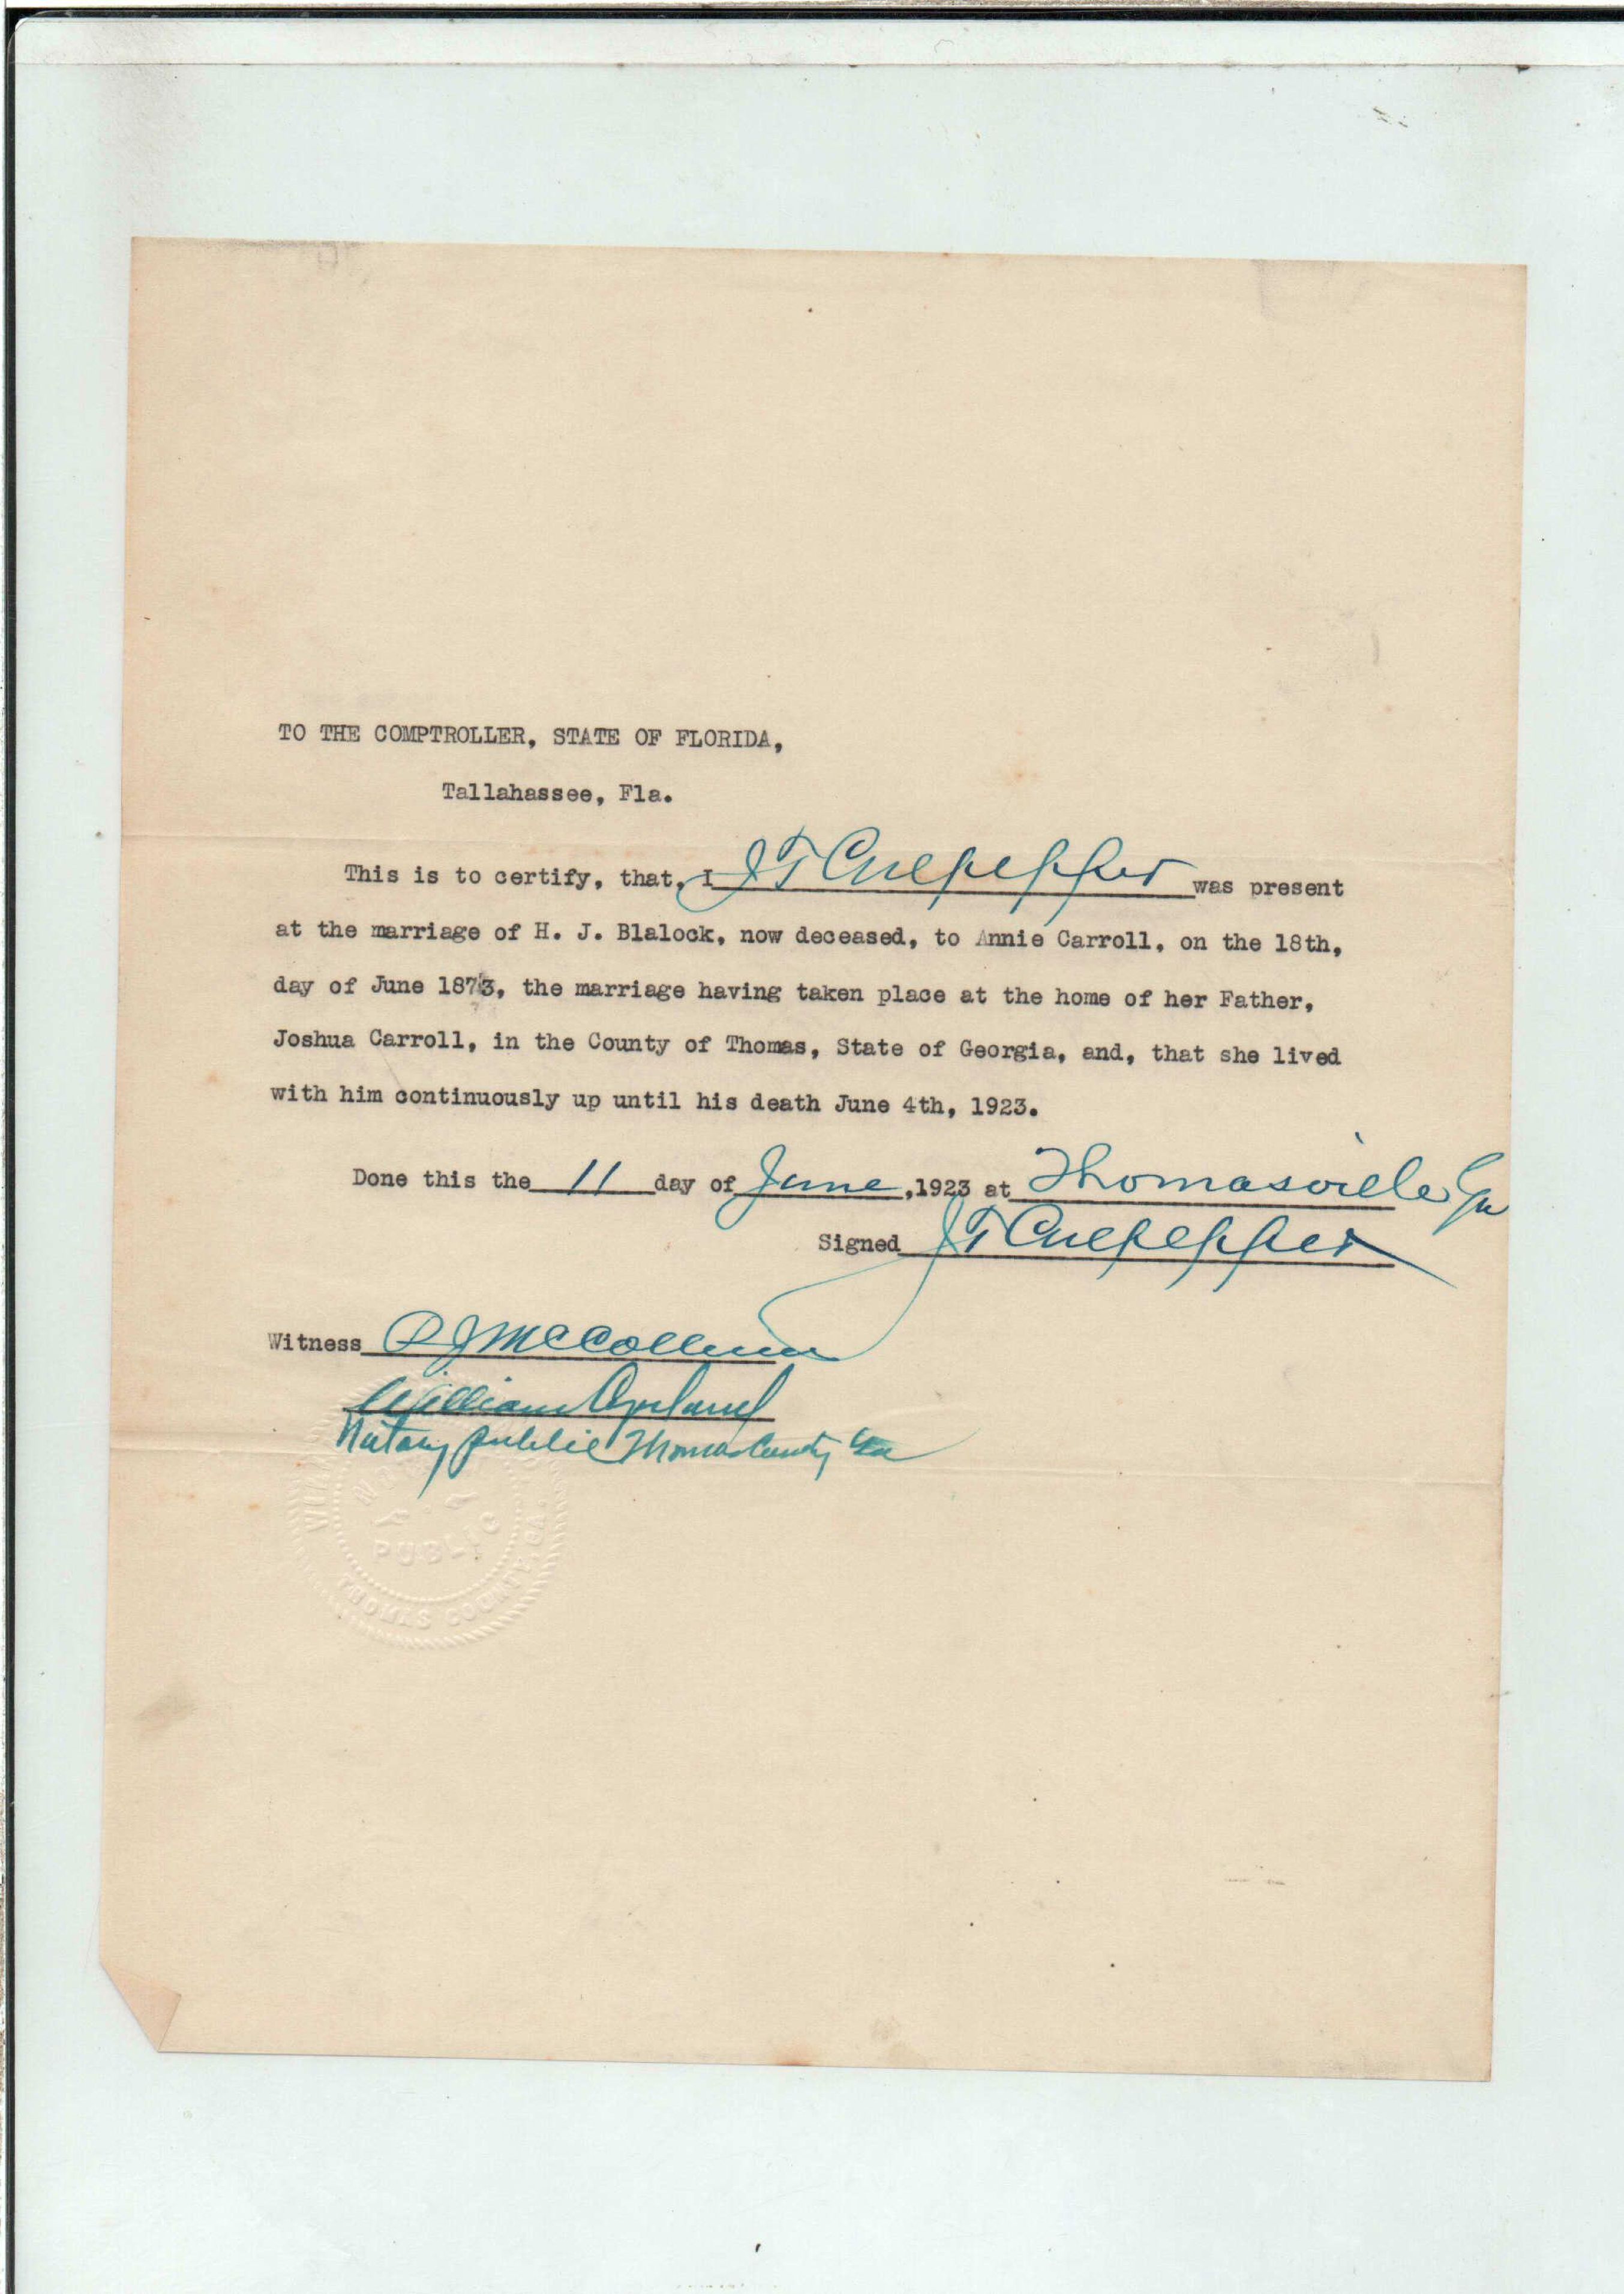 TO THE COMPTROLLER, STATE OF FLORIDA,
Tallahassee, Fla.
This is to certify, that, I J T Culpepper was present
at the marriage of H. J. Blalock, now deceased, to Annie Carroll, on the 18th,
day of June 1873, the marriage having taken place at the home of her Father,
Joshua Carroll, in the County of Thomas, State of Georgia, and, that she lived
with him continuously up until his death June 4th, 1923.
Done this the 11 day of June, 1923 at Thomasville Ga
Signed J T Culpepper
Witness P J McCollum
William Copeland
Notary public Thomas County Ga
PUBLIC
THOMAS COUNTY, GA.